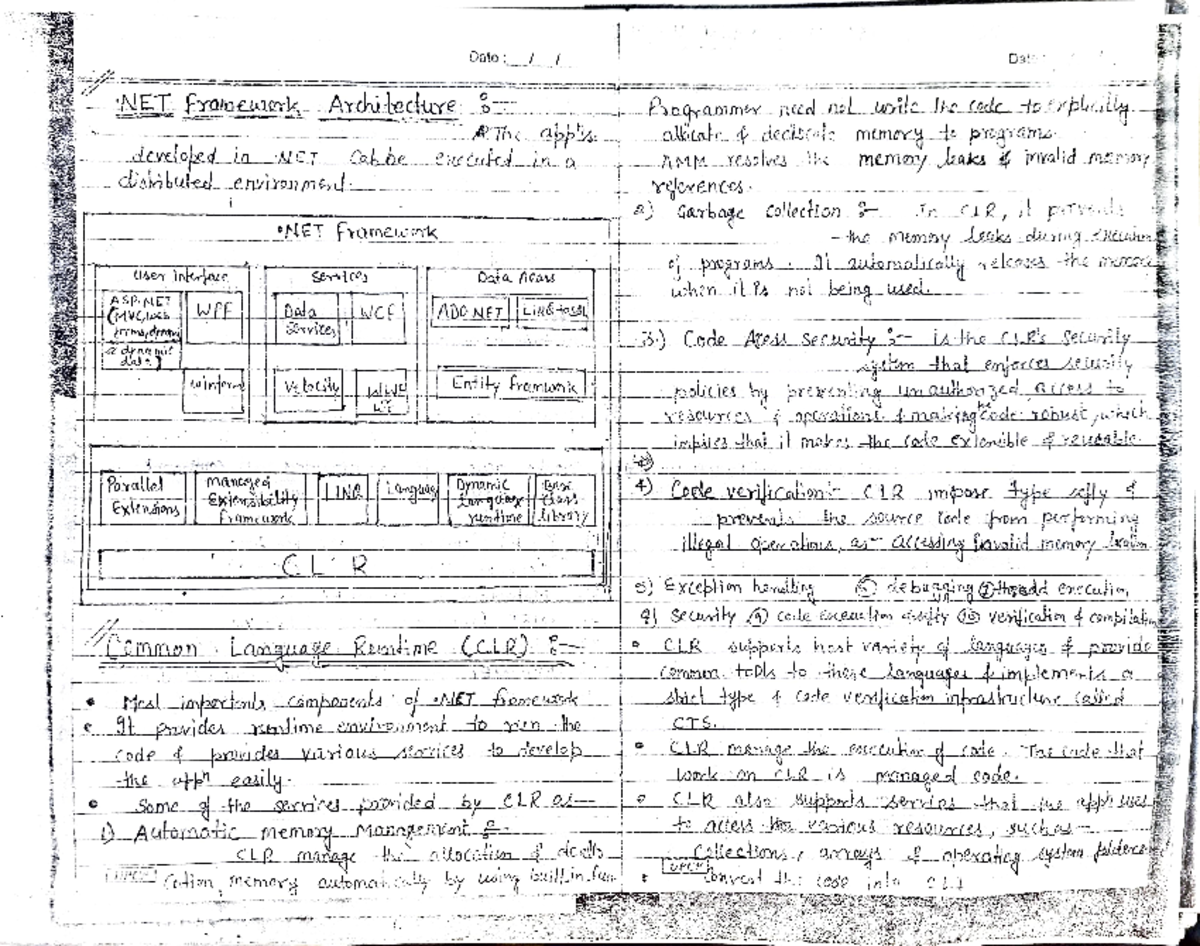 Date: / /
.NET Framework Architecture :-
The app'n
developed in .NET can be executed in a
distributed environment.
.NET Framework
User interface
ASP.NET
(MVC, web
forms,
& dynamic
data)
WPF
winform
Services
Data
Services
WCF
Velocity
WF
Data Acess
ADO.NET
LINQ to SQL
Entity framwork
Parallel
Extensions
Managed
Extensibility
framework
LINQ
Language
Dynamic
Language
runtime
Base
class
library
CLR
Common Language Runtime (CLR) :-
• Most importents components of .NET framework
• It provides runtime environment to run the
code & provides various services to develop
the appn easily.
• Some of the services provided by CLR as—
1) Automatic memory Management :-
CLR manage the allocation & deallo
cation memory automatically by using built in fun
Date:
Programmer need not write the code to explicitly
allocate & memory to programs.
AMM resolves the memory leaks & invalid memory
references.
2) Garbage collection :- In CLR, it prevents
the memory leaks during execution
of programs. It automatically releases the memory
when it is not being used.
3.) Code Acess Security :- is the CLR's security
system that enforces security
policies by preventing unauthorized access to
resources & operations & making the code robust, which
implies that it makes the code extensible & reusable.
4) Code verification :- CLR impose type sefty &
prevents the source code from performing
illegal operations, as— accessing invalid memory
5) Exception handling 6 debugging 7 thread execution
8) Security 9 code execution 10 verification & compilation
• CLR supports host variety of languages & provide
common tools to these languages & implements a
strict type & code verification infrastructure called
CTS.
• CLR manage the execution of code. The code that
work on CLR is managed code.
• CLR also supports services that the app uses
to access the various resources, such as—
Collections, arrays & operating system folders
• Convert the code into CLI